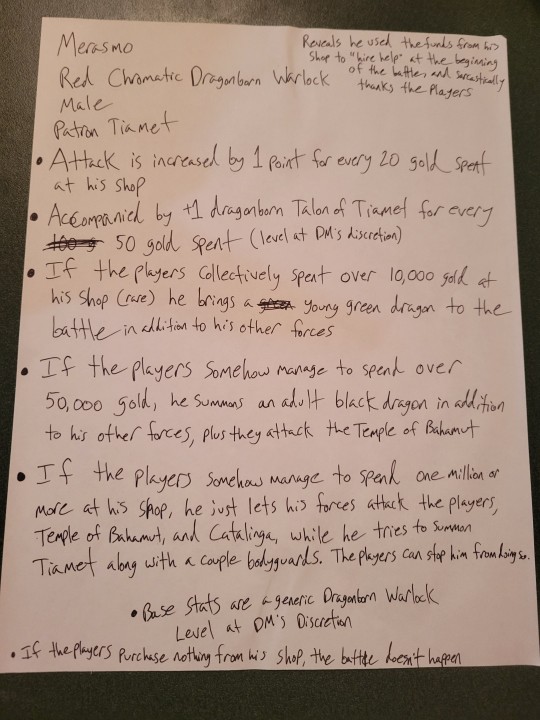 Merasmo
Red Chromatic Dragonborn Warlock
Male
Patron Tiamet
Reveals he used the funds from his
shop to "hire help" at the beginning
of the battle, and sarcastically
thanks the Players
• Attack is increased by 1 point for every 20 gold spent
at his shop
• Accompanied by +1 dragonborn Talon of Tiamet for every
50 gold spent (level at DM's discretion)
• If the players collectively spent over 10,000 gold at
his shop (rare) he brings a young green dragon to the
battle in addition to his other forces
• If the players somehow manage to spend over
50,000 gold, he summons an adult black dragon in addition
to his other forces, plus they attack the Temple of Bahamut
• If the players somehow manage to spend one million or
more at his shop, he just lets his forces attack the players,
Temple of Bahamut, and Catalinga, while he tries to summon
Tiamet along with a couple bodyguards. The players can stop him from doing so.
• Base stats are a generic Dragonborn Warlock
Level at DM's Discretion
• If the players purchase nothing from his shop, the battle doesn't happen